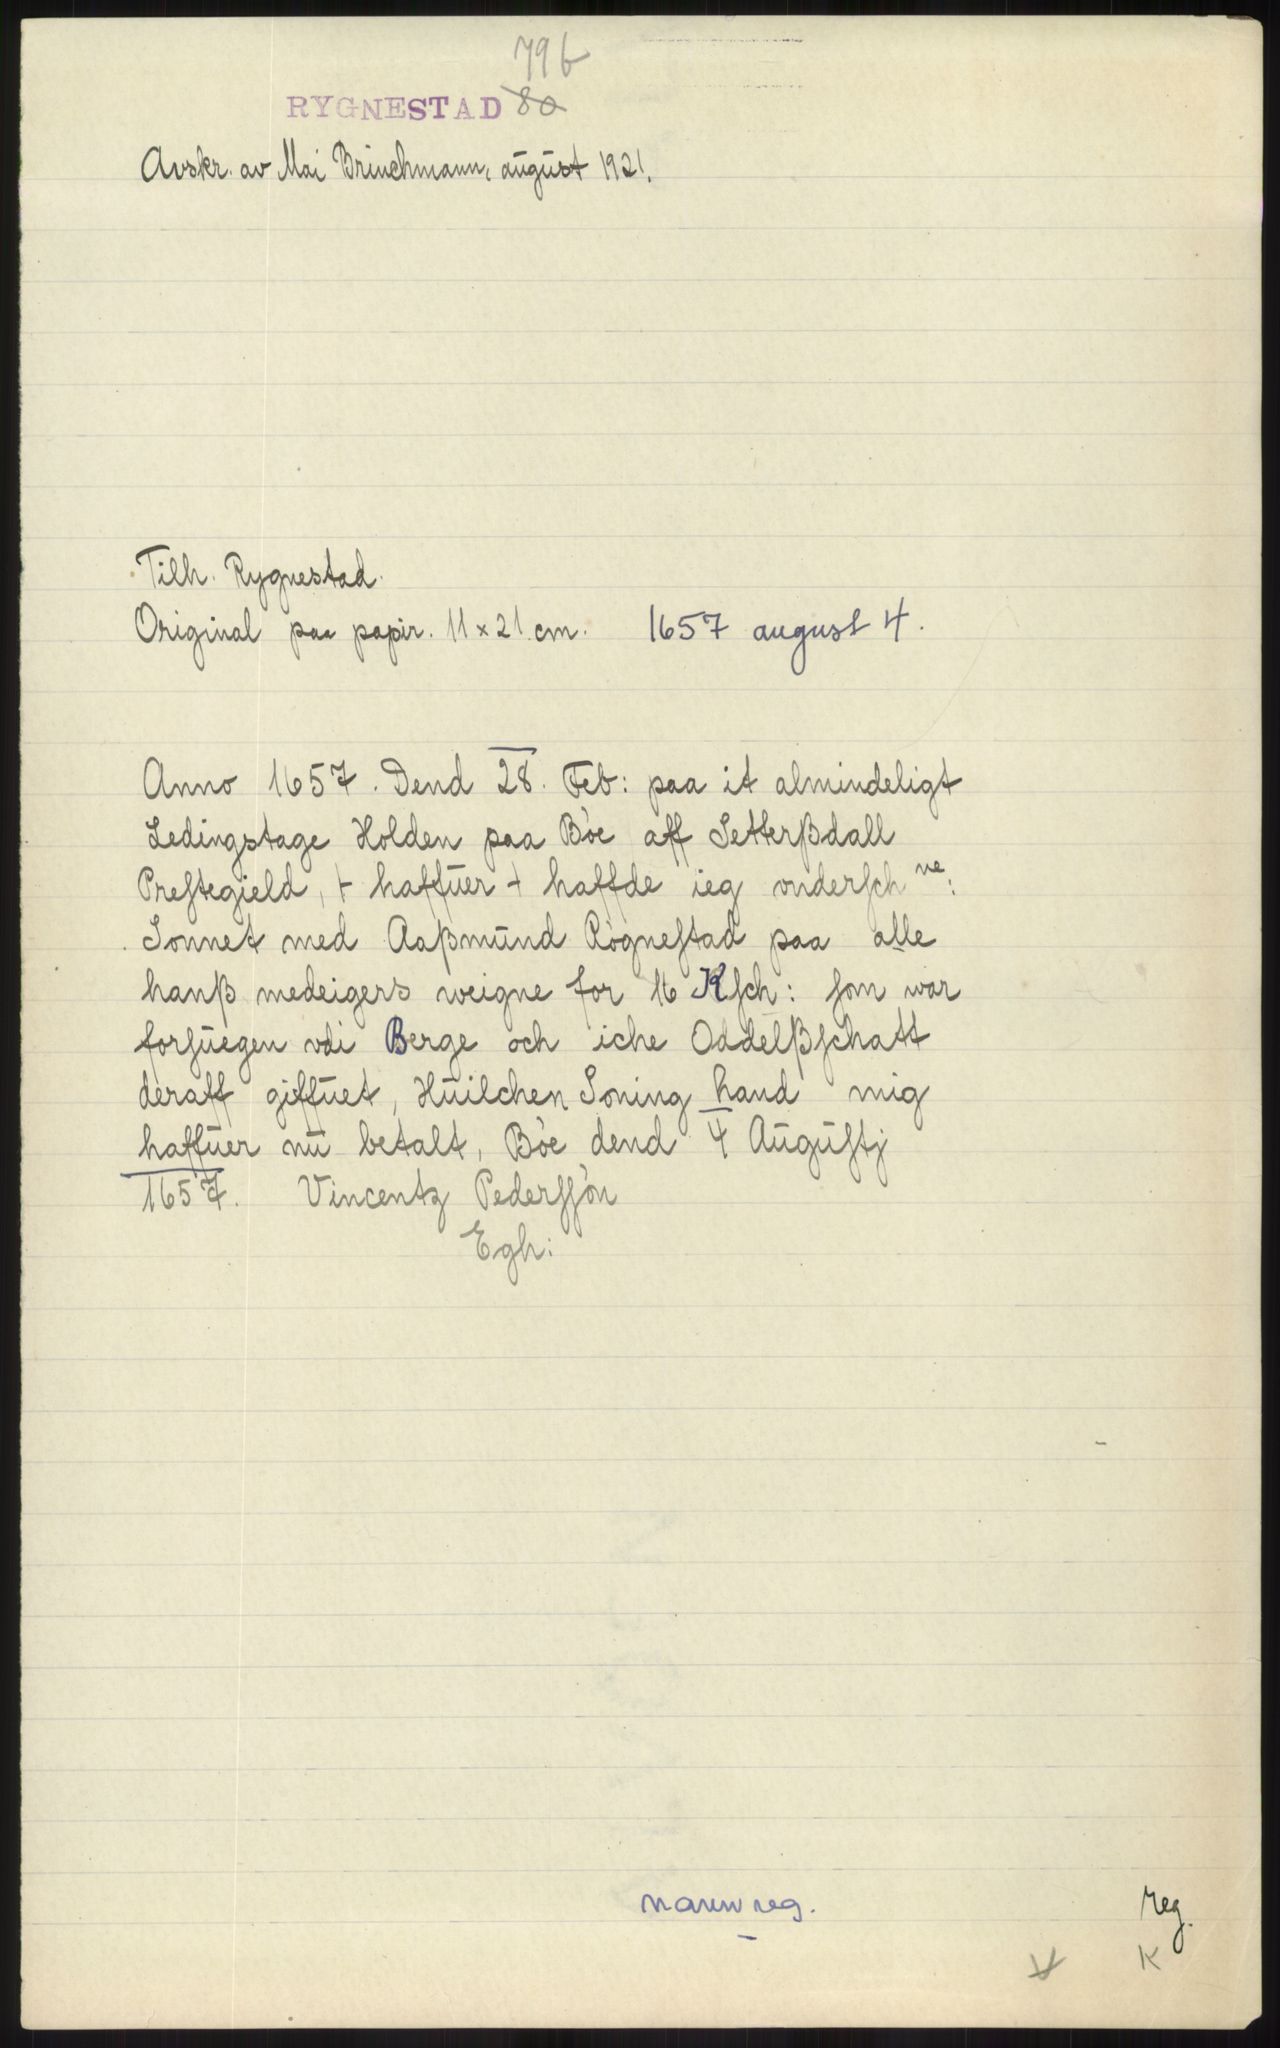 79b
RYGNESTAD 80
Avskr. av Mai Brinchmann, august 1921.
Tilh. Rygnestad.
Original paa papir. 11 x 21 cm. 1657 august 4.
Anno 1657. Dend 28. Feb: paa it almindeligt
Ledingstage Holden paa Bòe aff Setterßdall
Prestegield, + haffuer + haffde ieg vndersch ne:
Sonnet med Aaßmund Rògnestad paa alle
hanß medeigers weigne for 16 Rsch: som war
forsuegen vdi Berge och iche Oddelßschatt
deraff giffuet, Huilchen Soning hand mig
haffuer nu betalt, Bòe dend 4 Augustj
1657. Vincentz Pederssòn
Egh:
navnreg.
reg.
K